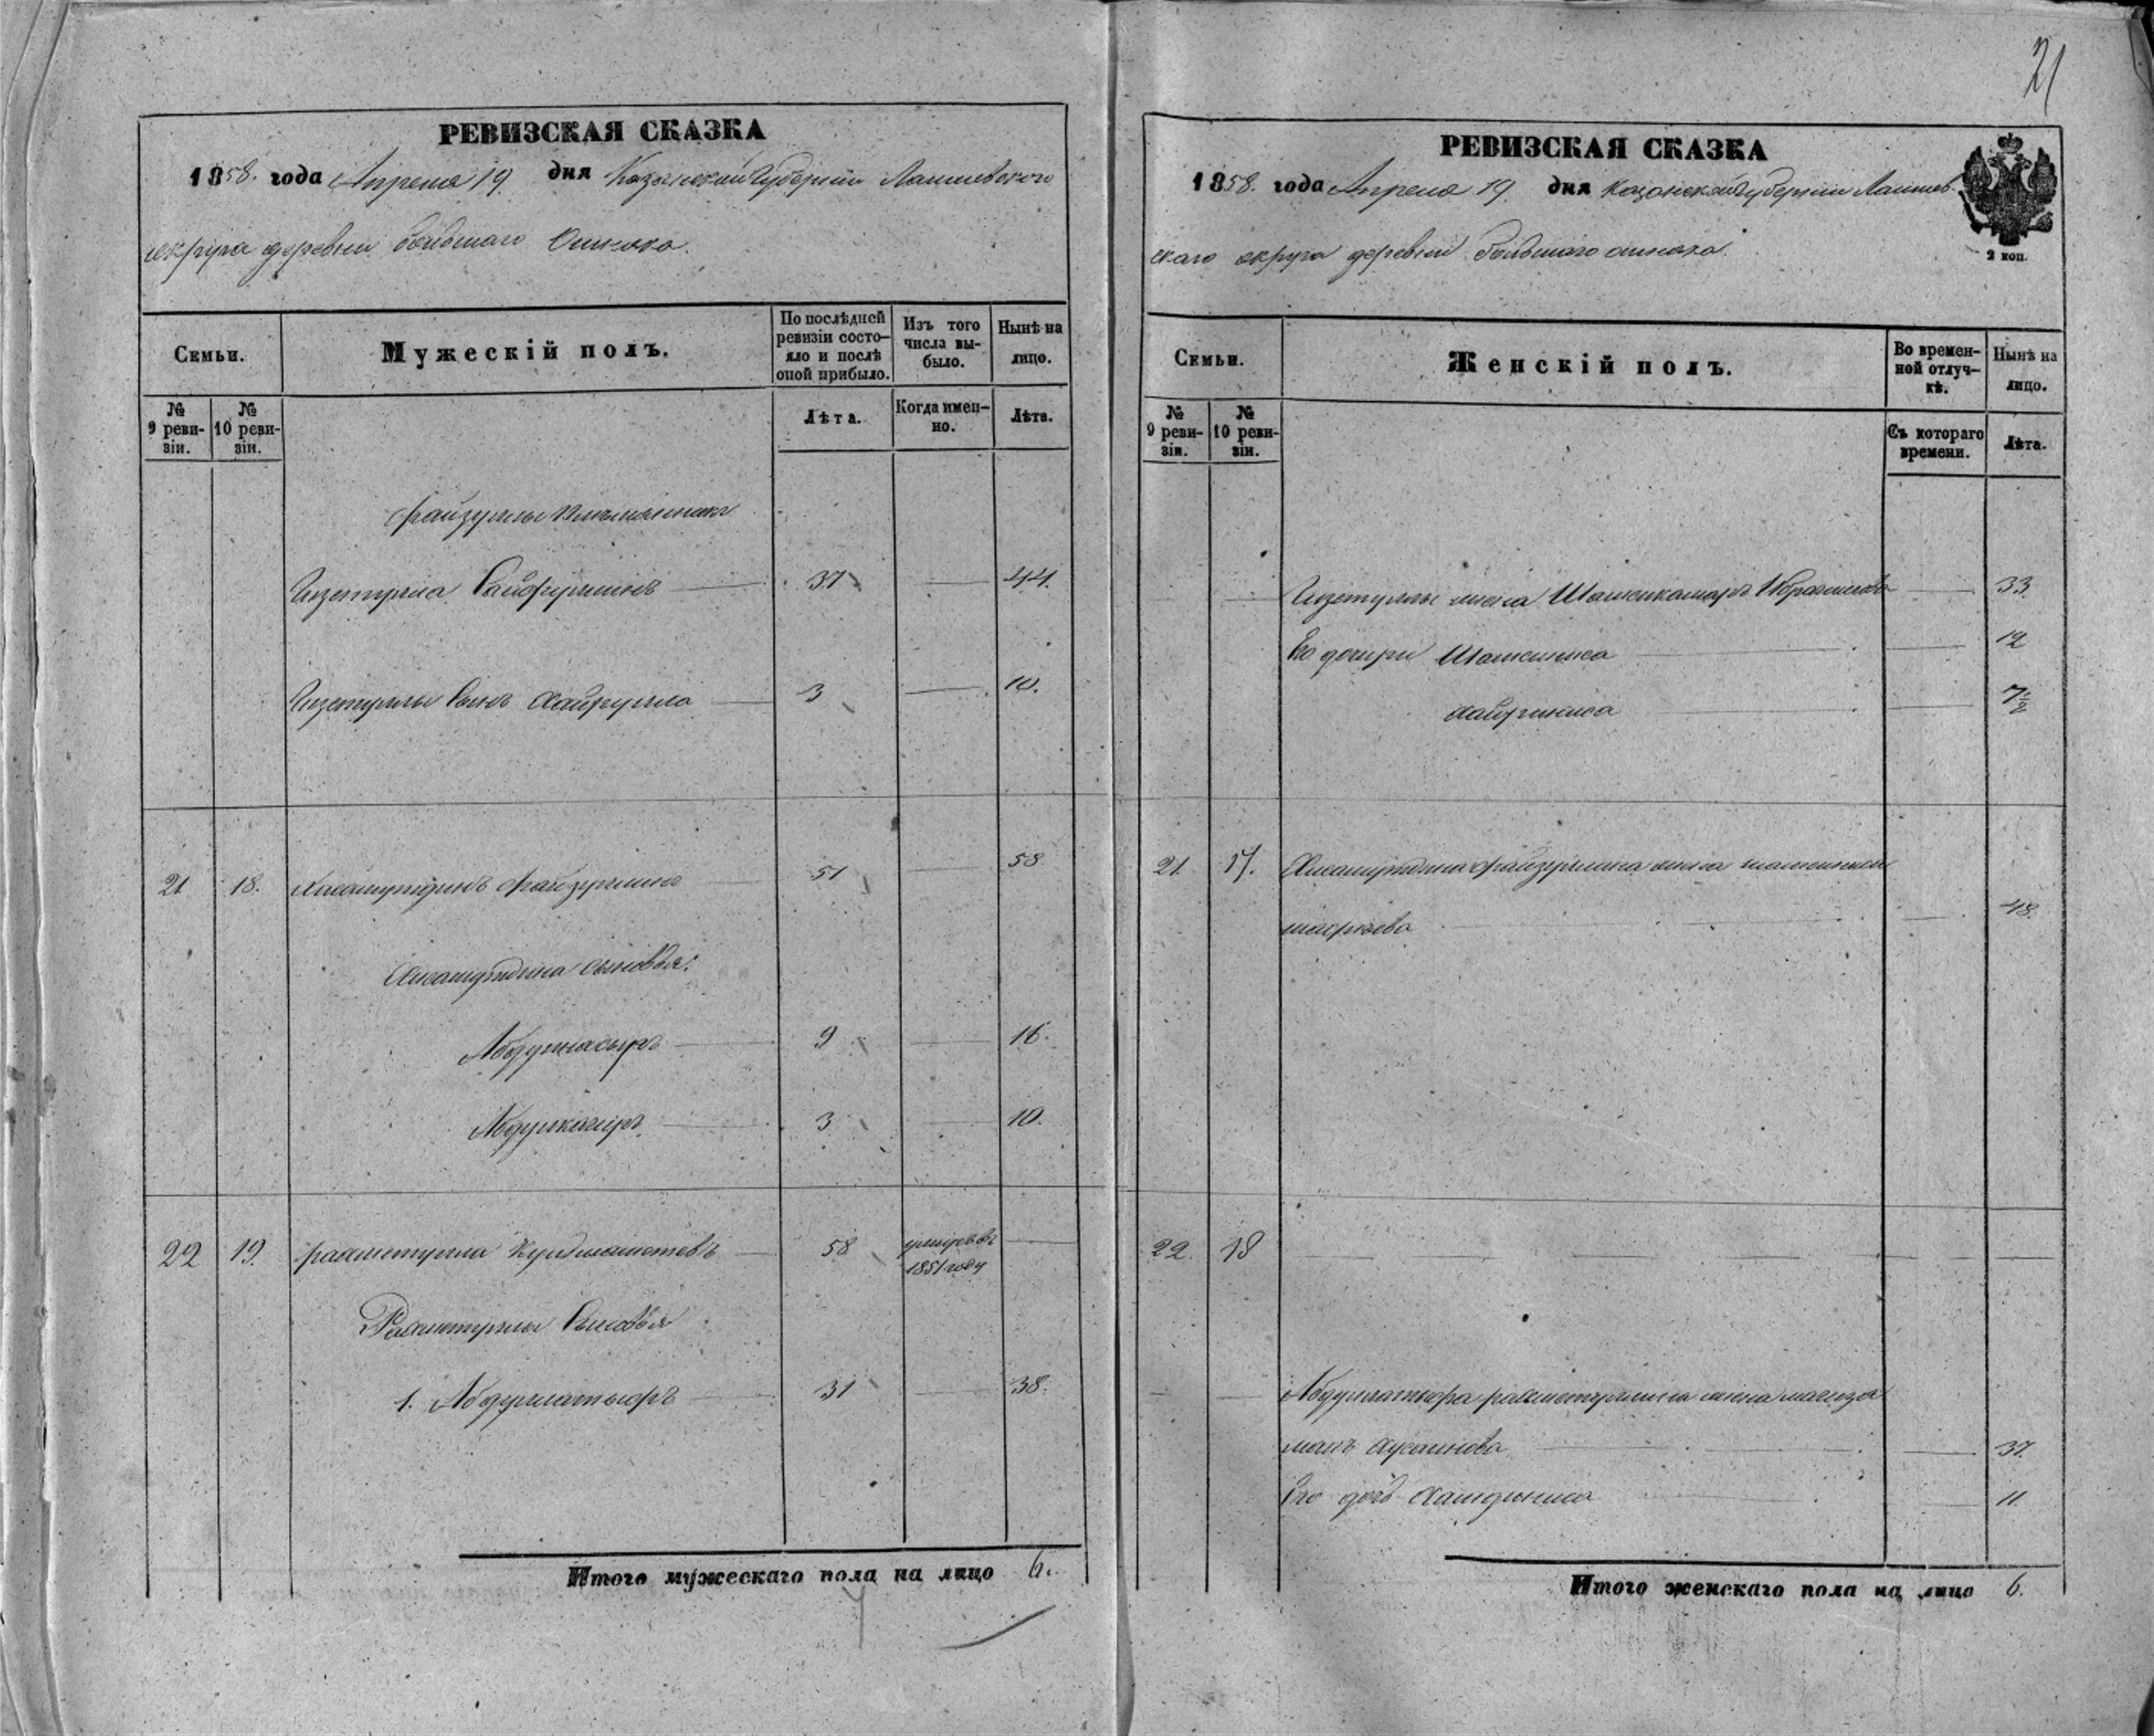 21
РЕВИЗСКАЯ СКАЗКА
1858. года Апреля 19. дня Казанской Губернии Лаишевского
округа деревни большаго Ошняка.
Семьи.
Мужескій полъ.
По послѣдней ревизіи состояло и послѣ оной прибыло.
Изъ того числа выбыло.
Нынѣ на лицо.
№ 9 ревизіи.
№ 10 ревизіи.
Лѣта.
Когда именно.
Лѣта.
Файзуллы племянника
Гизетулла Сайфуллинъ 37 44.
Гизетуллы Сынъ Хайрулла 3 10.
21 18. Хисамутдинъ Файзуллинъ 51 58
Хисамутдина сыновья:
Абдулнасыръ 9 16.
Абдулкагиръ 3 10.
22 19. Рахметулла 58 умеръ въ 1851 году
Рахметуллы Сыновья
1. Абдуллатыфъ 31 38.
Итого мужескаго пола на лицо 6.
РЕВИЗСКАЯ СКАЗКА
1858. года Апреля 19. дня Казанской Губернии Лаишев-
скаго округа деревни большаго ошняка
2 коп.
Семьи.
Женскій полъ.
Во временной отлучкѣ.
Нынѣ на лицо.
№ 9 ревизіи.
№ 10 ревизіи.
Съ котораго времени.
Лѣта.
Гизетуллы жена Шамсикамаръ Ибрагимова 33.
Его дочери Шамсиниса 12
Хайриниса 7 1/2
21. 17. Хисамутдина Файзуллина жена
48.
22. 18
Абдуллатыфа рахметуллина жена
Хусаинова 37.
Его дочь Хамдиниса 11.
Итого женскаго пола на лицо 6.